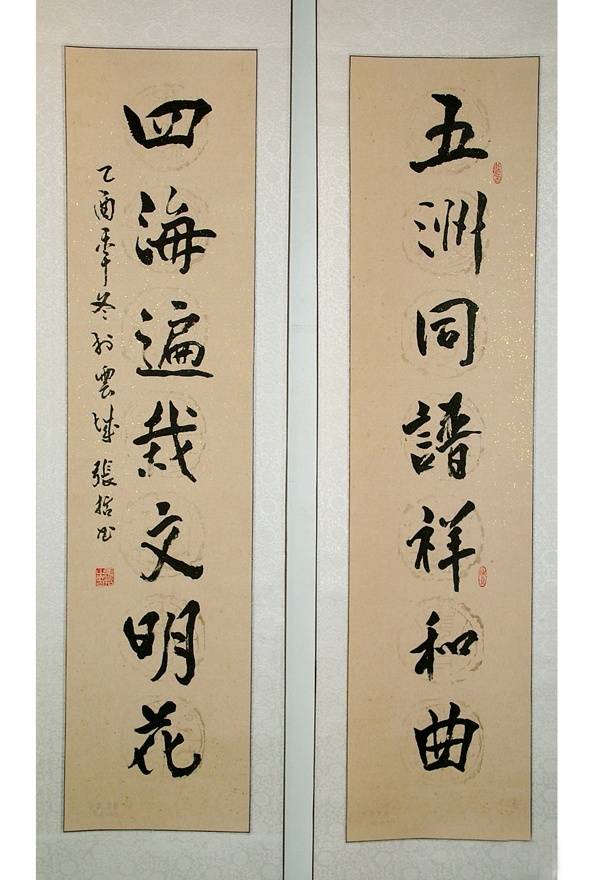 五洲同譜祥和曲
四海遍栽文明花
乙酉年冬於雲城張哲書